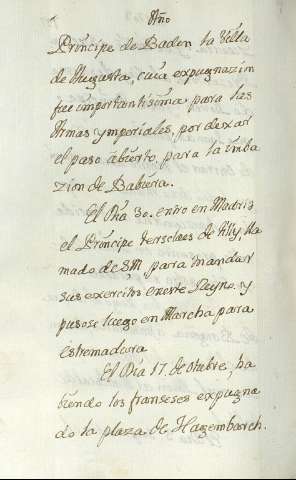 Año
Príncipe de Baden la Villa
de Augusta, cuia expugnazion
fue importantisima para las
Armas ymperiales, por dexar
el paso abierto, para la imba
zion de Babiera.
El Dia 30. entro en Madrid
el Príncipe tersclaes de tilly, lla
mado de S.M. para mandar
sus exercitos en este Reyno. y
pusose luego en Marcha para
estremadura
El Dia 17. de Otubre, ha
biendo los franseses expugna
do la plaza de Hagembasch.